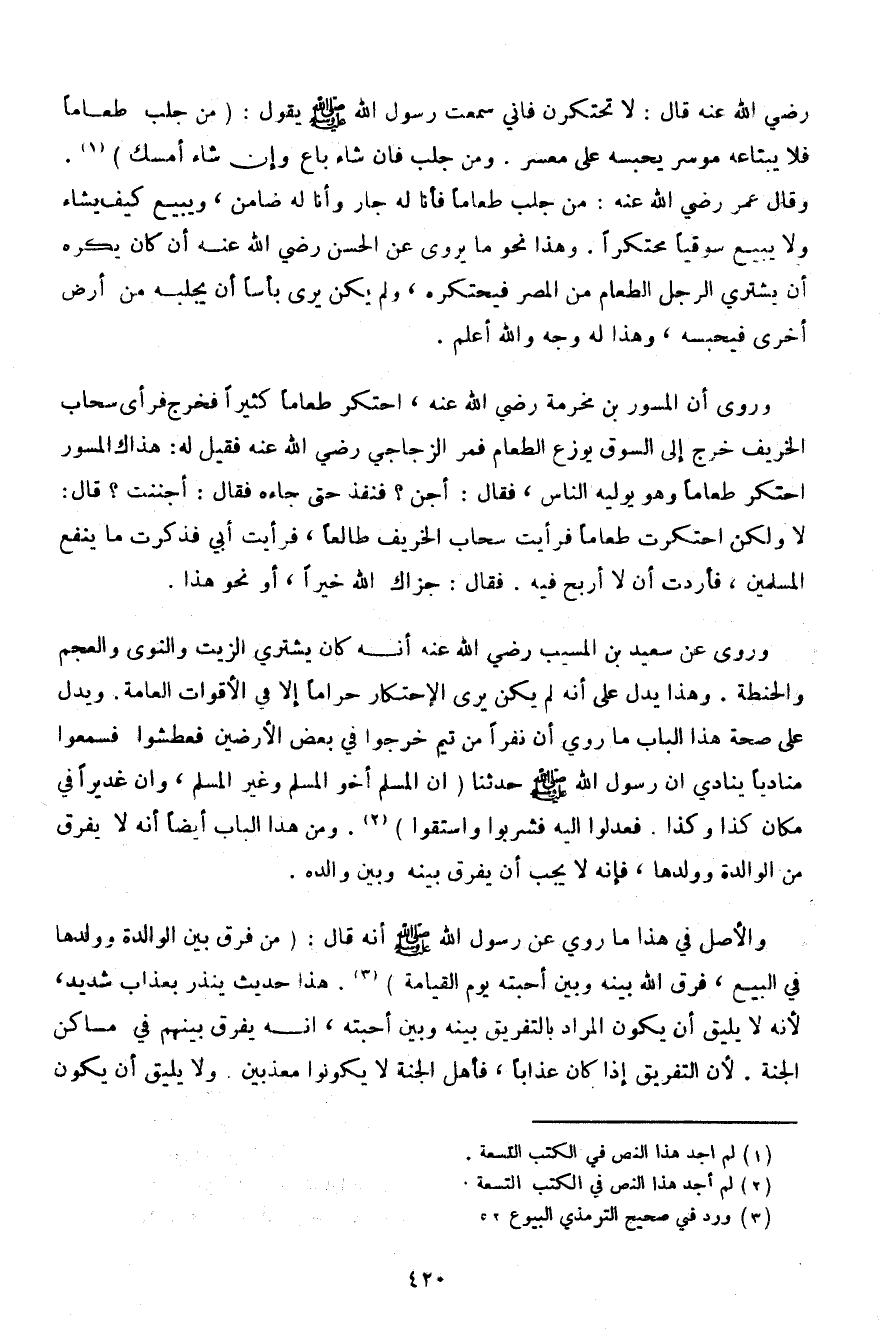 رضي الله عنه قال : لا تحتكرون فاني سمعت رسول الله ﷺ يقول : ( من جلب طعـاماً
فلا يبتاعه موسر يحبسه على معسر . ومن جلب فان شاء باع وإن شاء أمسك ) (١) .
وقال عمر رضي الله عنه : من جلب طعاماً فأنا له جار وأنا له ضامن ، ويبيع كيف يشاء
ولا يبيع سوقياً محتكراً . وهذا نحو ما يروى عن الحسن رضي الله عنـه أن كان يكره
أن يشتري الرجل الطعام من المصر فيحتكره ، ولم يكن يرى بأساً أن يجلبـه من أرض
أخرى فيحبسه ، وهذا له وجه والله أعلم .
وروى أن المسور بن مخرمة رضي الله عنه ، احتكر طعاماً كثيراً فخرج فرأى سحاب
الخريف خرج إلى السوق يوزع الطعام فمر الزجاجي رضي الله عنه فقيل له: هذاك المسور
احتكر طعاماً وهو يوليه الناس ، فقال : أجن ؟ فنفذ حتى جاءه فقال : أجننت ؟ قال:
لا ولكن احتكرت طعاماً فرأيت سحاب الخريف طالعاً ، فرأيت أبي فذكرت ما ينفع
المسلمين ، فأردت أن لا أربح فيه . فقال : جزاك الله خيراً ، أو نحو هذا .
وروى عن سعيد بن المسيب رضي الله عنه أنـه كان يشتري الزيت والنوى والعجم
والحنطة . وهذا يدل على أنه لم يكن يرى الإحتكار حراماً إلا في الأقوات العامة . ويدل
على صحة هذا الباب ما روي أن نفراً من تيم خرجوا في بعض الأرضين فعطشوا فسمعوا
منادياً ينادي ان رسول الله ﷺ حدثنا ( ان المسلم أخو المسلم وغير المسلم ، وان غديراً في
مكان كذا وكذا . فعدلوا اليه فشربوا واستقوا ) (٢) . ومن هذا الباب أيضاً أنه لا يفرق
من الوالدة وولدها ، فإنه لا يجب أن يفرق بينه وبين والده .
والأصل في هذا ما روي عن رسول الله ﷺ أنه قال : ( من فرق بين الوالدة وولدها
في البيـع ، فرق الله بينه وبين أحبته يوم القيامة ) (٣) . هذا حديث ينذر بعذاب شديد،
لأنه لا يليق أن يكون المراد بالتفريق بينه وبين أحبته ، انـه يفرق بينهم في مساكن
الجنة . لأن التفريق إذا كان عذاباً ، فأهل الجنة لا يكونوا معذبين . ولا يليق أن يكون
(١) لم اجد هذا النص في الكتب التسعة .
(٢) لم أجد هذا النص في الكتب التسعة .
(٣) ورد في صحيح الترمذي البيوع ٥٢
٤٢٠